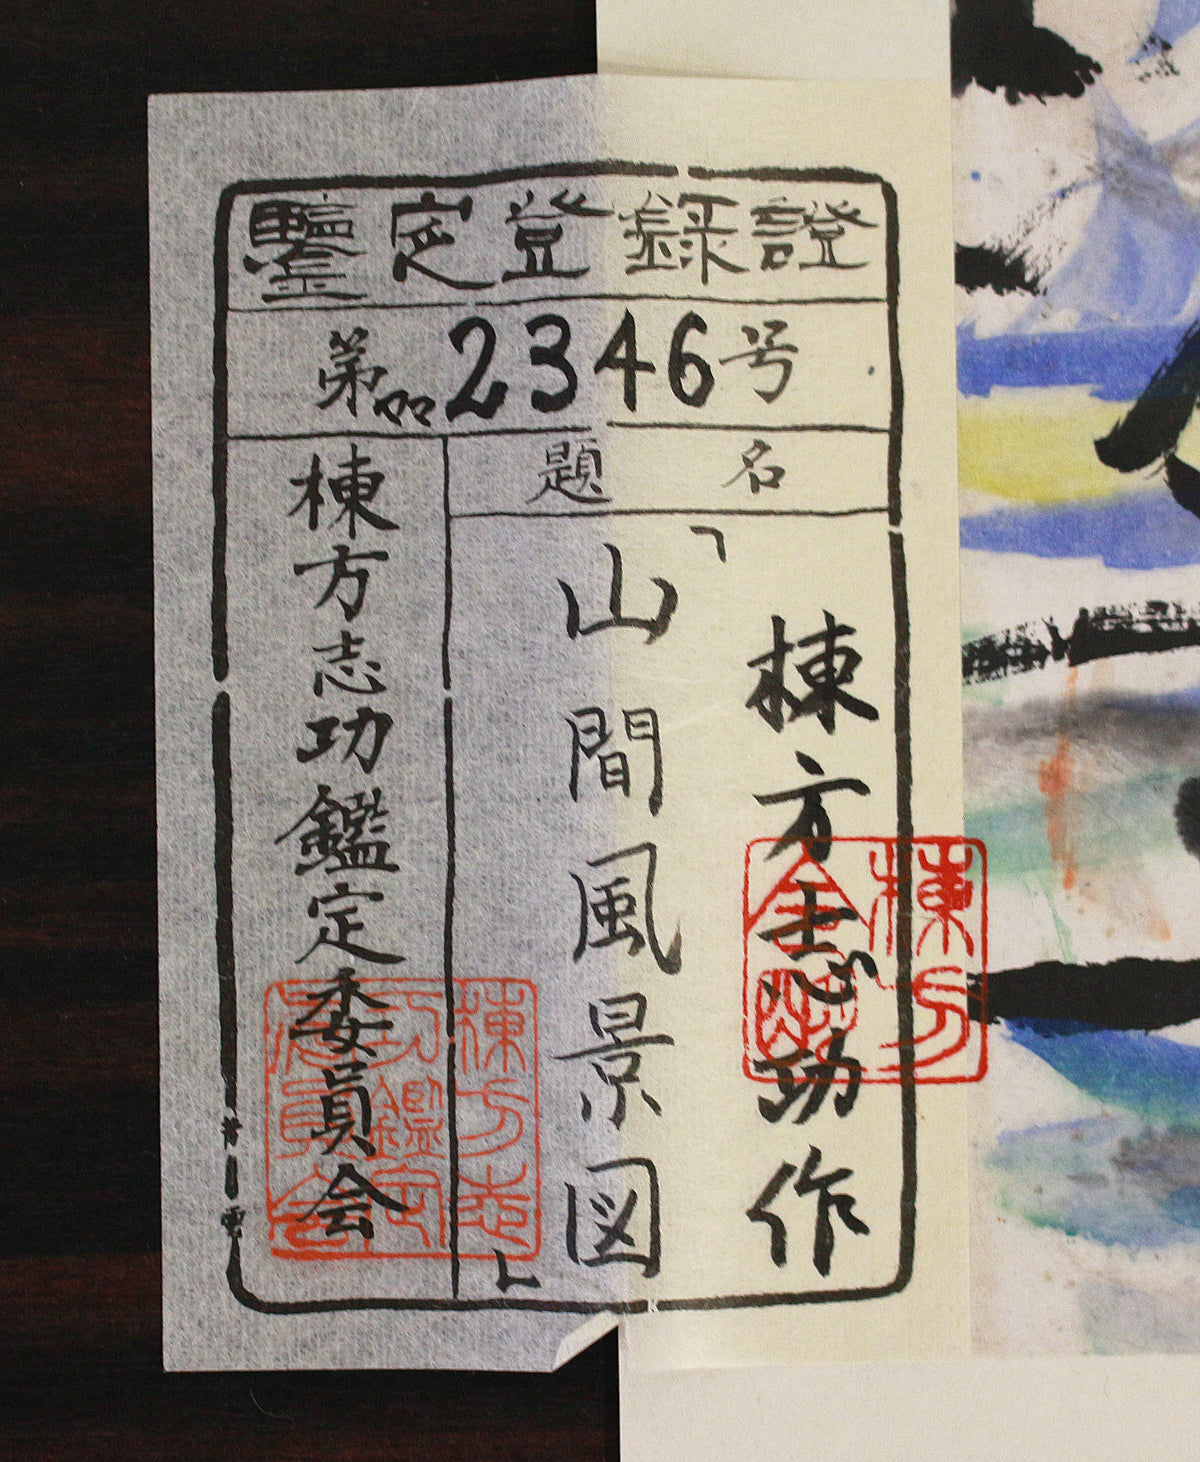 鑒定登録證
第 2346号
題名
棟方志功作
「山間風景図」
棟方志功鑑定委員会
棟方
棟方志
功鑑定
委員会